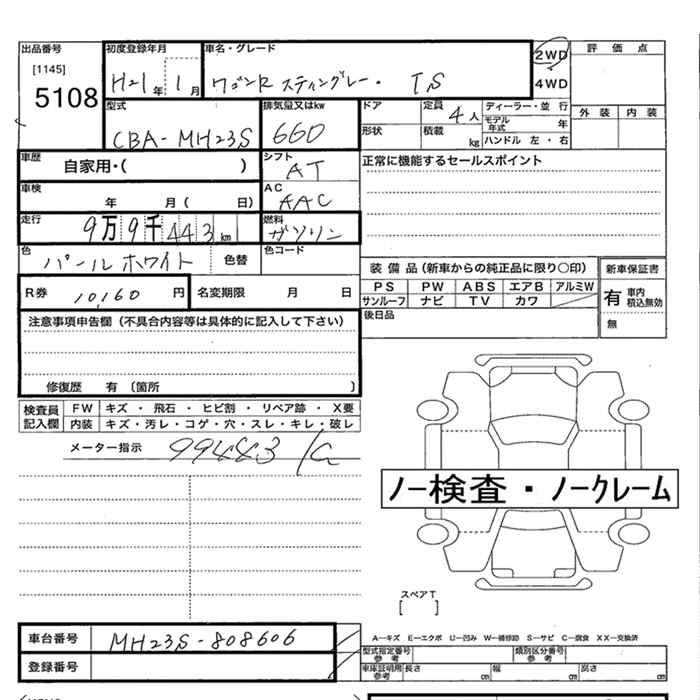 出品番号 初度登録年月 車名・グレード 2WD 評価点
[1145] H21年 1月 ワゴンR スティングレー・ TS 4WD
5108 型式 排気量又はkw ドア 定員 4人 ディーラー・並行 外装 内装
CBA-MH23S 660 形状 積載 kg モデル年式 年
ハンドル 左・右
車歴 自家用・( ) シフト AT 正常に機能するセールスポイント
車検 年 月( 日) AC AAC
走行 9万9千443km 燃料 ガソリン
色 パールホワイト 色替 色コード
装備品(新車からの純正品に限り〇印) 新車保証書
R券 10,160円 名変期限 月 日 PS PW ABS エアB アルミW 有 車内積込無効
サンルーフ ナビ TV カワ
後日品 無
注意事項申告欄(不具合内容等は具体的に記入して下さい)
修復歴 有〔箇所 〕
検査員記入欄 FW キズ・飛石・ヒビ割・リペア跡・X要
内装 キズ・汚レ・コゲ・穴・スレ・キレ・破レ
メーター指示 99443
ノー検査・ノークレーム
スペアT
[ ]
車台番号 MH23S-808606 A―キズ E―エクボ U―凹み W―補修跡 S―サビ C―腐食 XX―交換済
型式指定番号 参考 類別区分番号 参考
登録番号 車庫証明用 参考 長さ cm 幅 cm 高さ cm